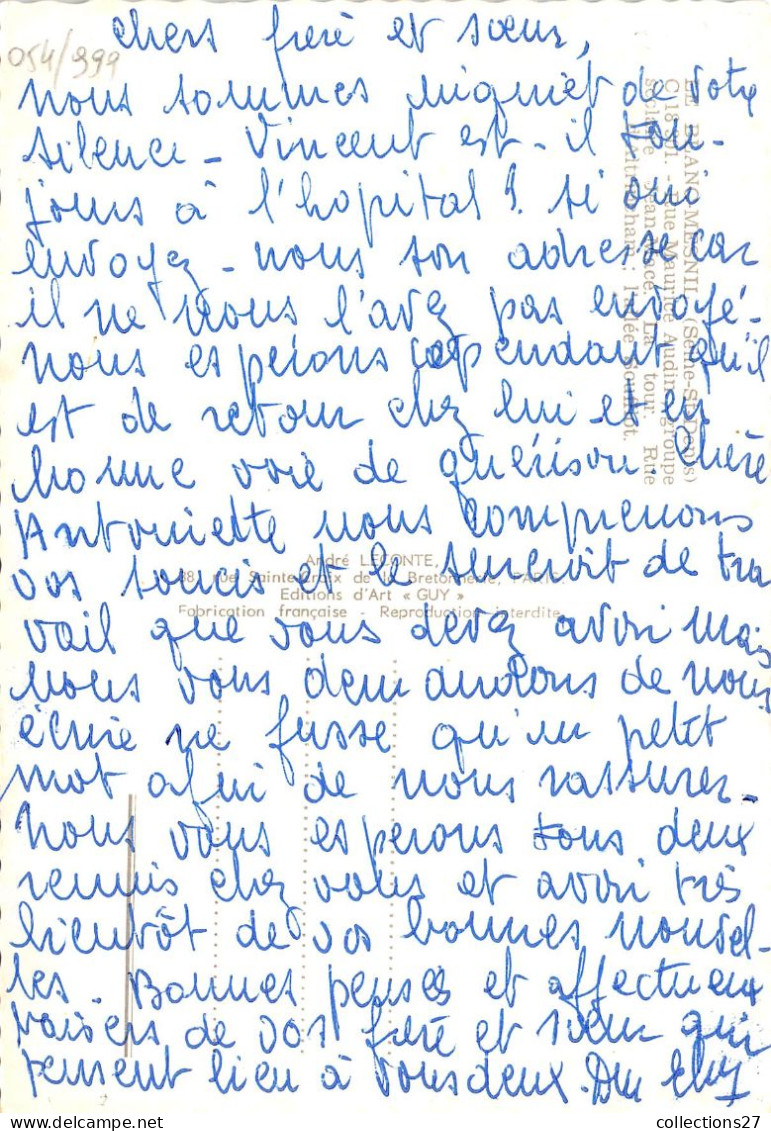 054/999
chers frere et sœur,
nous sommes inquiet de votre
silence - Vincent est-il tou-
jours à l'hopital ? si oui
envoyez-nous son adresse car
il ne nous l'avez pas envoyé-
nous esperons cependant qu'il
est de retour chez lui et en
bonne voie de guérison. Chère
Antoniette nous comprenons
vos soucis et le surcroit de tra
vail que vous devez avoir mais
nous vous demandons de nous
écrire ne fusse qu'un petit
mot afin de nous rassurer-
nous vous esperons tous deux
reunis chez vous et avoir très
bientôt de vos bonnes nouvel-
les. Bonnes pensées et affectueux
baisers de vos frere et sœur qui
pensent bien à vous deux.
LE BLANC-MESNIL (Seine-St-Denis)
Rue Maurice Audin groupe
scolaire Jean Macé. La tour. Rue
André LECONTE,
38, rue Sainte-Croix de la Bretonnerie, PARIS.
Editions d'Art « GUY »
Fabrication française - Reproduction interdite
collections27